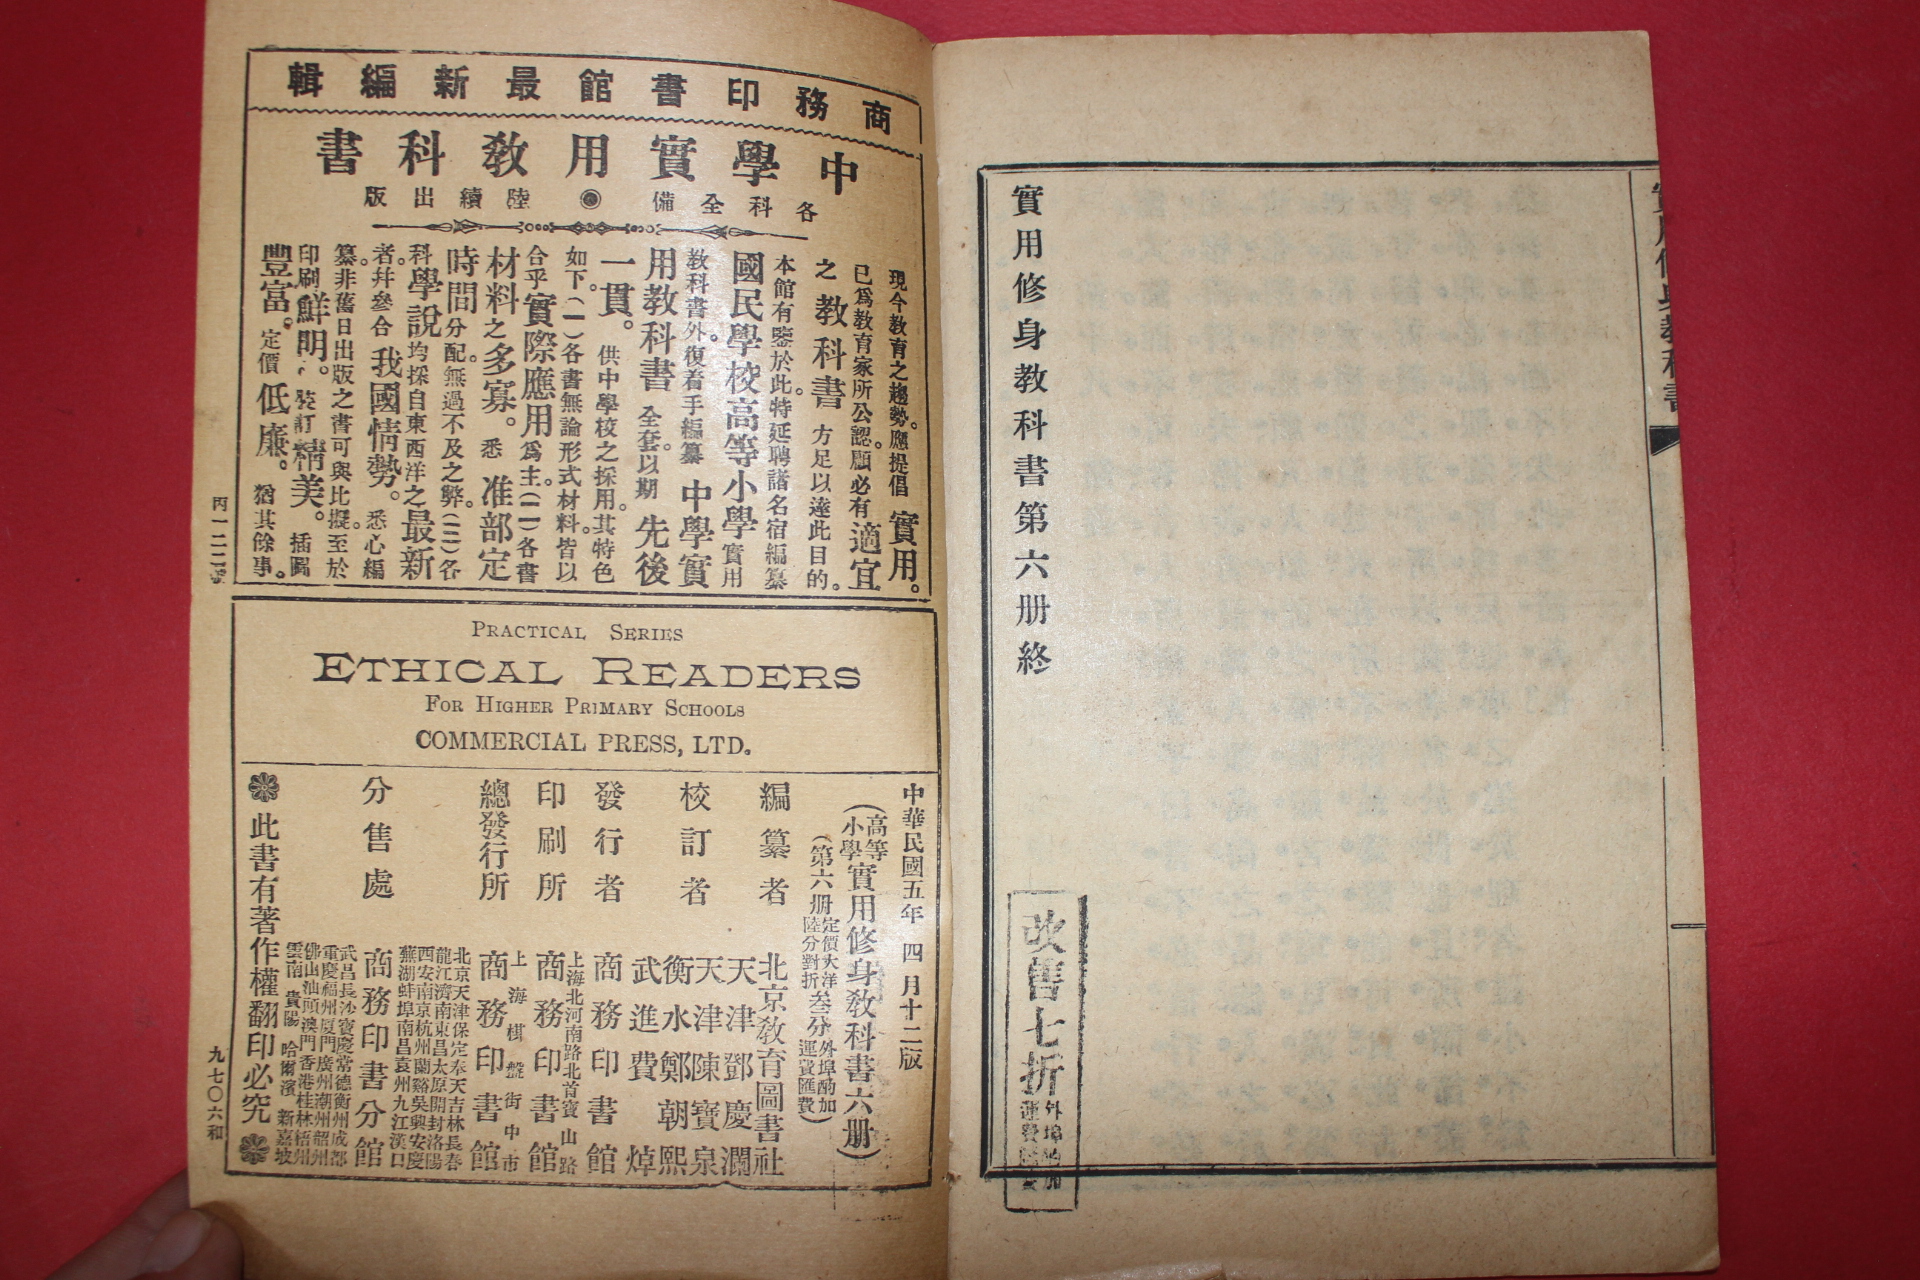 實用修身教科書第六册終
改售七折
商務印書館最新編輯
中學實用教科書
各科全備◉陸續出版
現今教育之趨勢。應提倡實用。
已爲教育家所公認。顧必有適宜
之教科書方足以達此目的。
本館有鑒於此。特延聘諸名宿編纂
國民學校高等小學實用
教科書外。復着手編纂中學實
用教科書全套。以期先後
一貫。供中學校之採用。其特色
如下。(一)各書無論形式材料。皆以
合乎實際應用爲主。(二)各書
材料之多寡。悉准部定
時間分配。無過不及之弊。(三)各
科學說均採自東西洋之最新
者。幷參合我國情勢。悉心編
纂。非舊日出版之書可與比擬。至於
印刷鮮明。裝訂精美。插圖
豐富。定價低廉。猶其餘事。
PRACTICAL SERIES
ETHICAL READERS
FOR HIGHER PRIMARY SCHOOLS
COMMERCIAL PRESS, LTD.
中華民國五年四月十二版
(高等小學實用修身教科書六册)
(第六册定價大洋陸分對折叁分外埠酌加運費匯費)
編纂者 北京教育圖書社
天津鄧慶瀾
校訂者 天津陳寶泉
衡水鄭朝熙
武進費焯
發行者 商務印書館
印刷所 上海北河南路北首寶山路
商務印書館
總發行所 上海棋盤街中市
商務印書館
分售處 北京天津保定奉天吉林長春
龍江濟南東昌太原開封洛陽
西安南京杭州蘭谿吳興安慶
蕪湖蚌埠南昌袁州九江漢口
商務印書分館
武昌長沙寶慶常德衡州成都
重慶福州厦門廣州潮州韶州
佛山汕頭澳門香港桂林梧州
雲南貴陽哈爾濱新嘉坡
此書有著作權翻印必究
九七〇六和